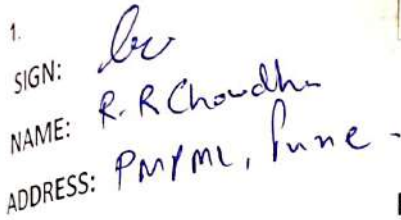 1.
SIGN:
NAME: R. R Choudhu
ADDRESS: PMPML, Pune -